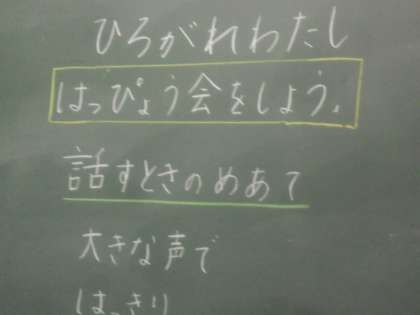 ひろがれわたし
はっぴょう会をしよう。
話すときのめあて
大きな声で
はっきり